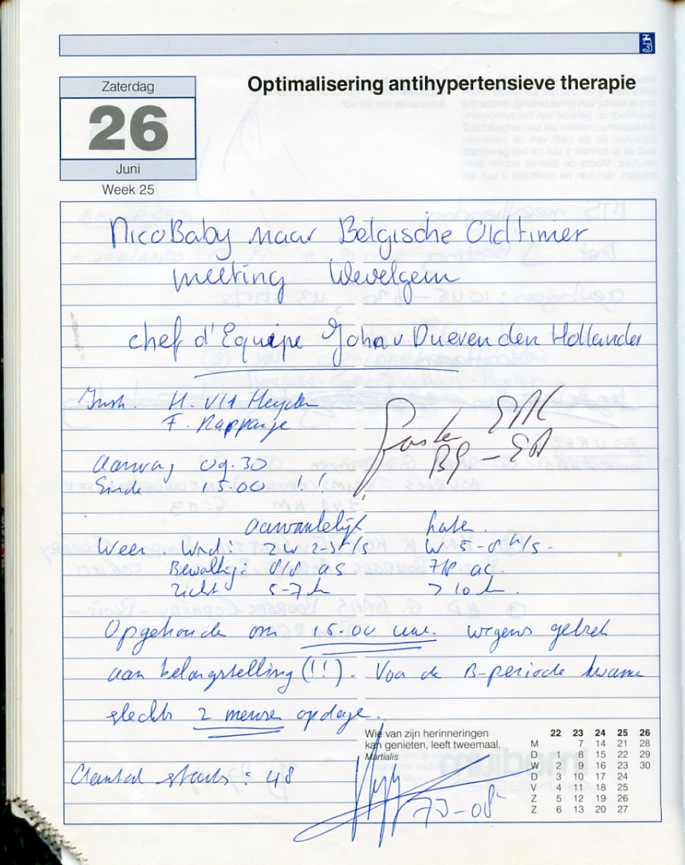 Zaterdag
26
Juni
Week 25
Optimalisering antihypertensieve therapie
NicoBaby naar Belgische Oldtimer
meeting Wevelgem
chef d'Equipe John v Dueven den Hollander
Instr. H. v/d Heyden
F.
Aanvang 09.30
Einde 15.00 !!
aanvankelijk later.
Weer Wnd: ZW 2-5 W 5-8
Bewolking: 8/8 as 7/8 ac.
Zicht 5-7 > 10
Opgehouden om 15.00 uur. wegens gebrek
aan belangstelling (!!). Voor de B-periode kwamen
slechts 2 mensen opdagen.
Aantal starts: 48
Wie van zijn herinneringen
kan genieten, leeft tweemaal.
Martialis
22 23 24 25 26
M 7 14 21 28
D 1 8 15 22 29
W 2 9 16 23 30
D 3 10 17 24
V 4 11 18 25
Z 5 12 19 26
Z 6 13 20 27